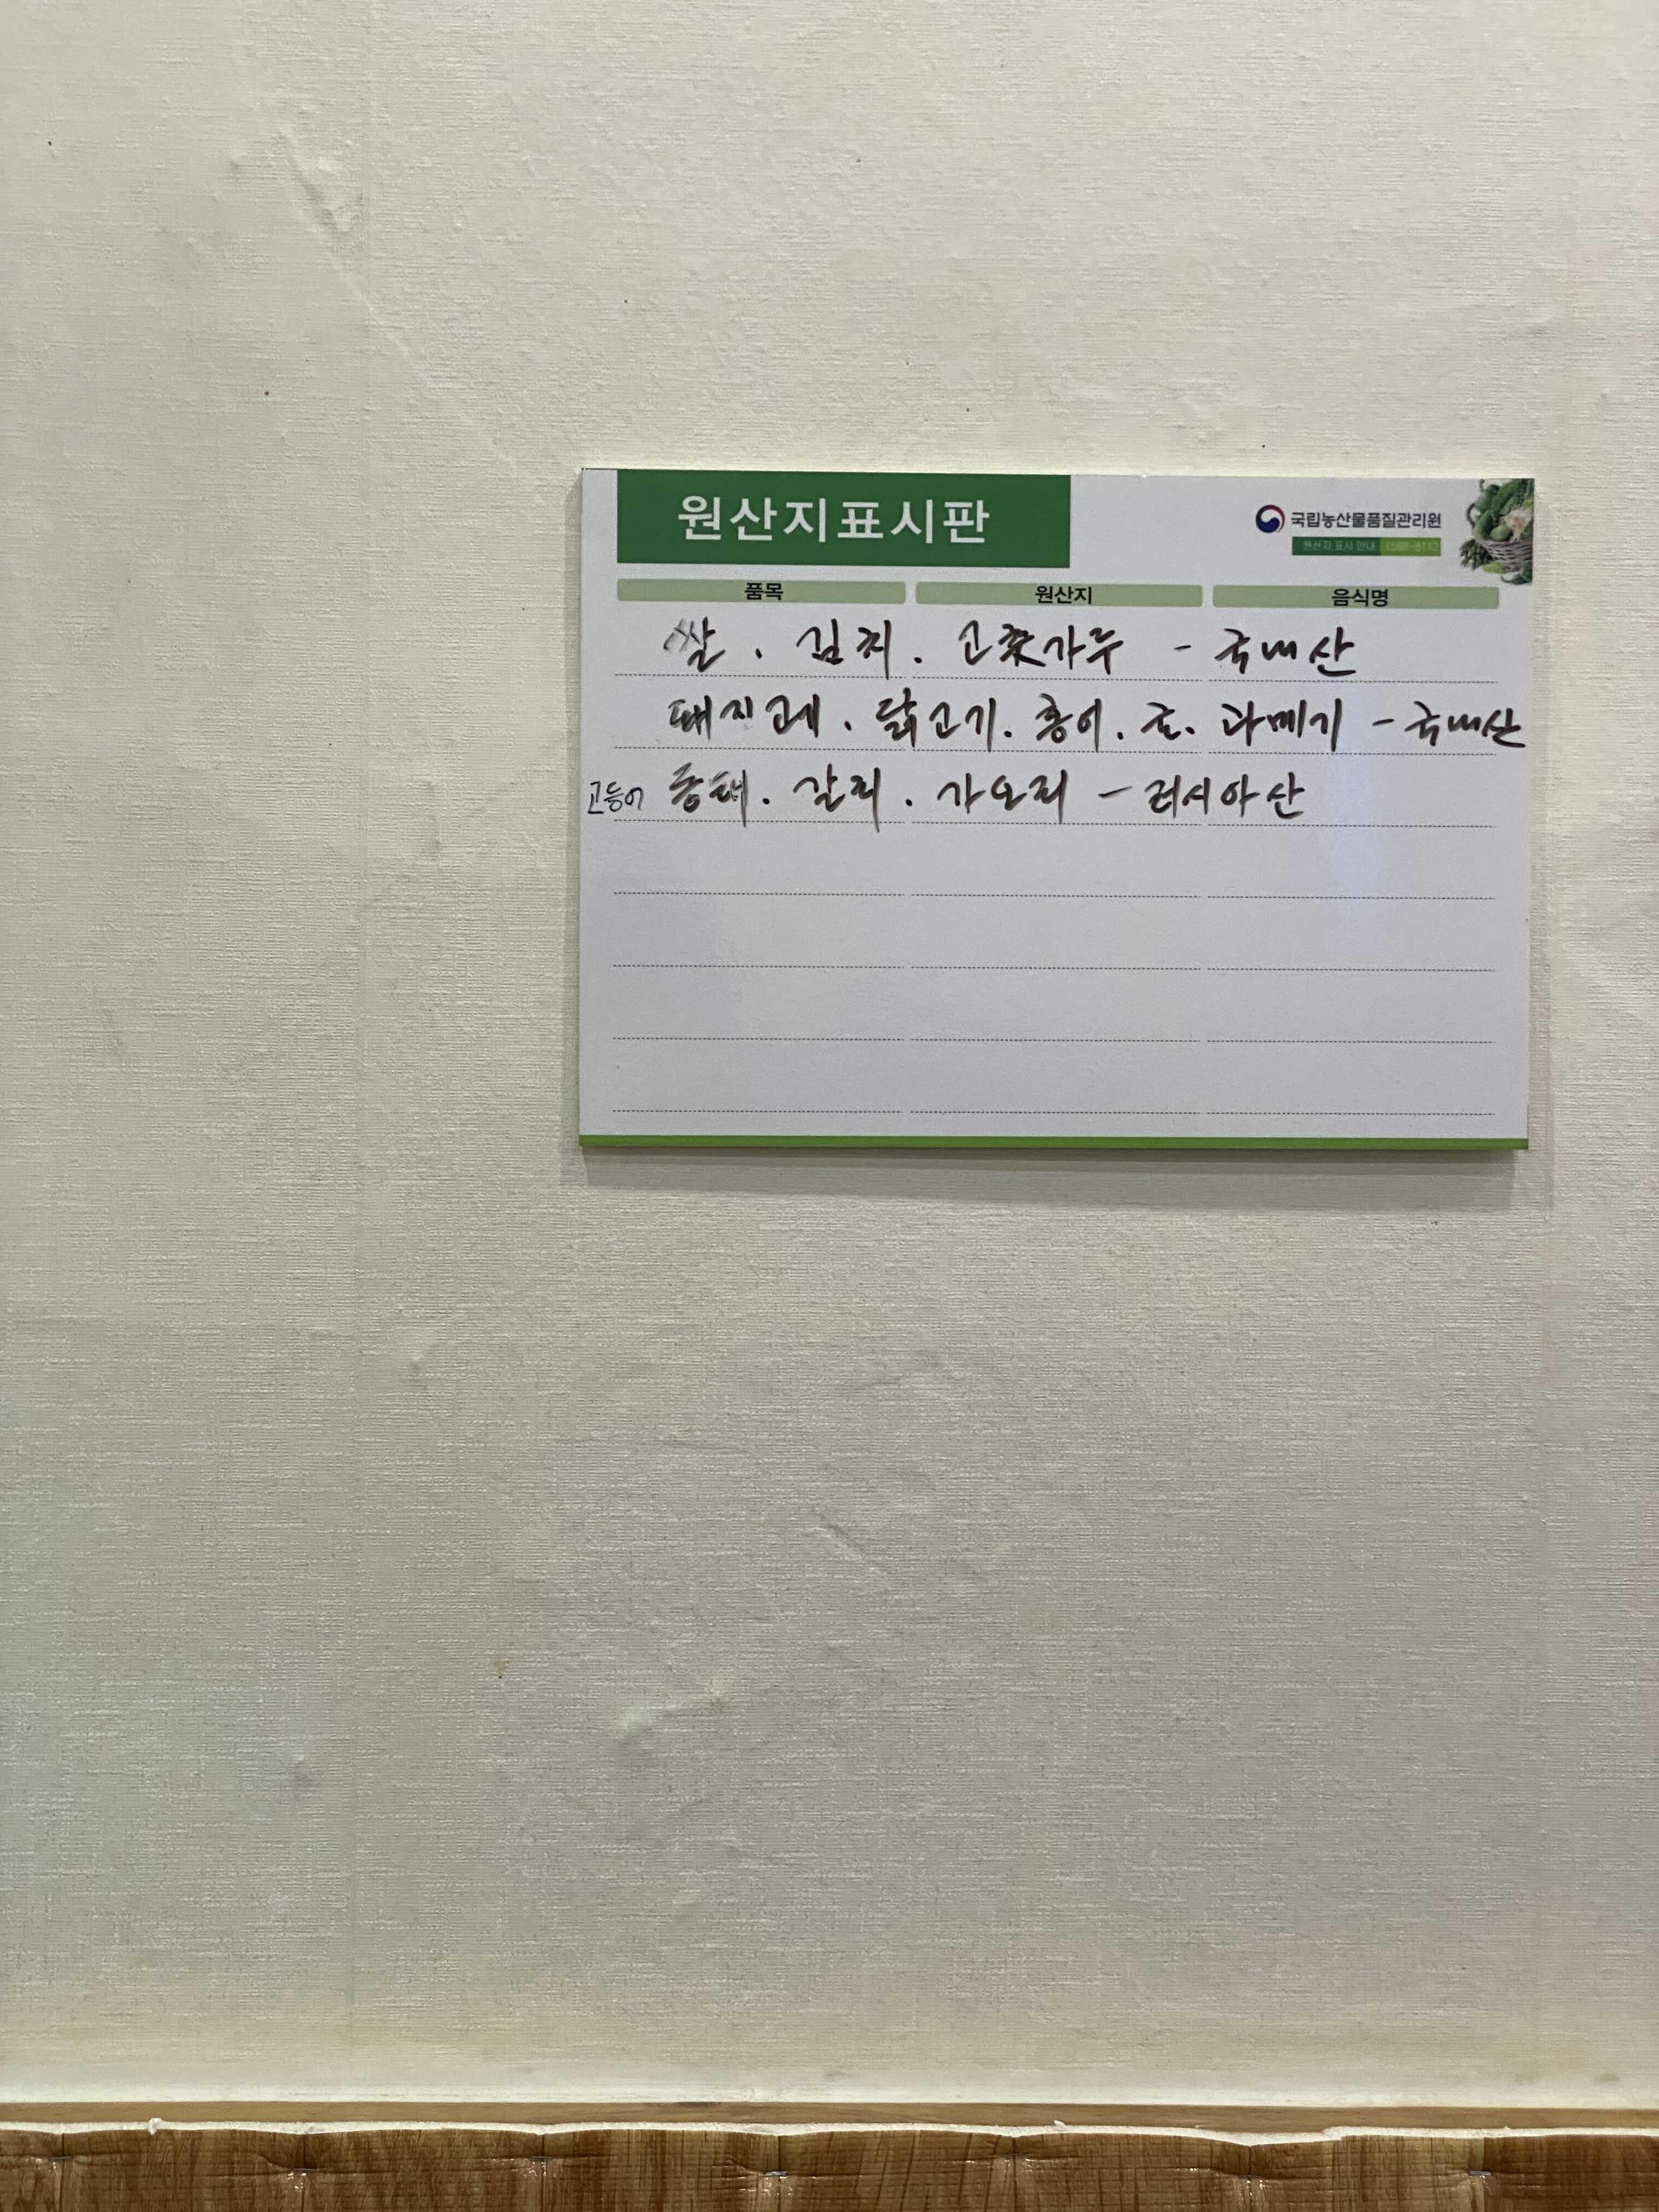 원산지표시판
국립농산물품질관리원
원산지 표시 안내 1588-8112
품목 원산지 음식명
쌀 . 김치 . 고춧가루 - 국내산
돼지고기 . 닭고기 . 홍어 . 굴 . 과메기 - 국내산
고등어 동태 . 갈치 . 가오리 - 러시아산